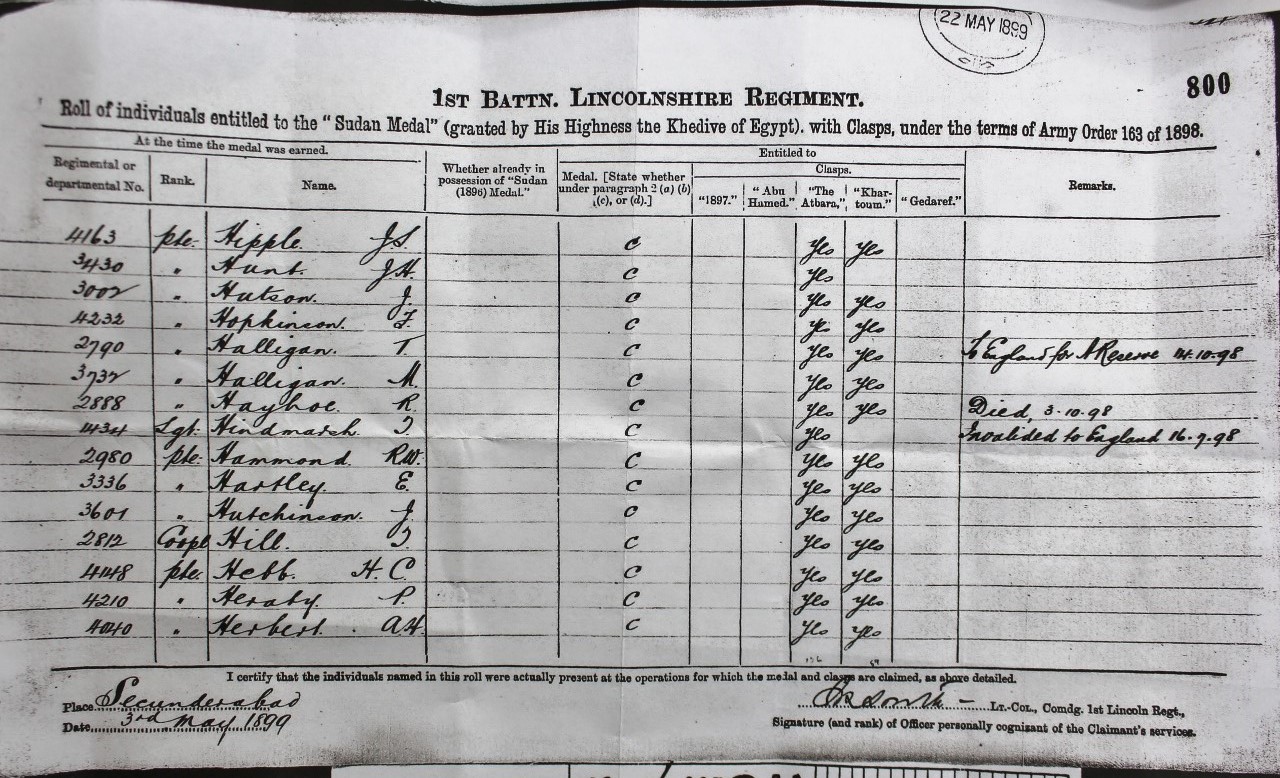 22 MAY 1899
800
1ST BATTN. LINCOLNSHIRE REGIMENT.
Roll of individuals entitled to the "Sudan Medal" (granted by His Highness the Khedive of Egypt). with Clasps, under the terms of Army Order 163 of 1898.
At the time the medal was earned.
Regimental or departmental No.
Rank.
Name.
Whether already in possession of "Sudan (1896) Medal."
Entitled to
Medal. [State whether under paragraph 2 (a) (b) (c), or (d).]
Clasps.
"1897."
"Abu Hamed."
"The Atbara,"
"Khartoum."
"Gedaref."
Remarks.
4163 pte. Hipple. J.S. C Yes Yes
3430 " Hunt. J.H. C Yes
3002 " Hutson. J. C Yes Yes
4232 " Hopkinson. F. C Yes Yes
2790 " Halligan. T. C Yes Yes To England for A Reserve 14.10.98
3732 " Halligan. M. C Yes Yes
2888 " Hayhoe. R. C Yes Yes Died, 3.10.98
1434 Sgt. Hindmarsh. J C Yes Invalided to England 16.7.98
2980 pte. Hammond. R.W. C Yes Yes
3336 " Hartley. E. C Yes Yes
3601 " Hutchinson. J. C Yes Yes
2812 Hill. J. C Yes Yes
4448 pte. Hebb. H.C. C Yes Yes
4210 " P. C Yes Yes
4040 " Herbert. A.H. C Yes Yes
I certify that the individuals named in this roll were actually present at the operations for which the medal and clasps are claimed, as above detailed.
Place Secunderabad
Date 3rd May, 1899
LT.-COL., Comdg. 1st Lincoln Regt.,
Signature (and rank) of Officer personally cognizant of the Claimant's services.